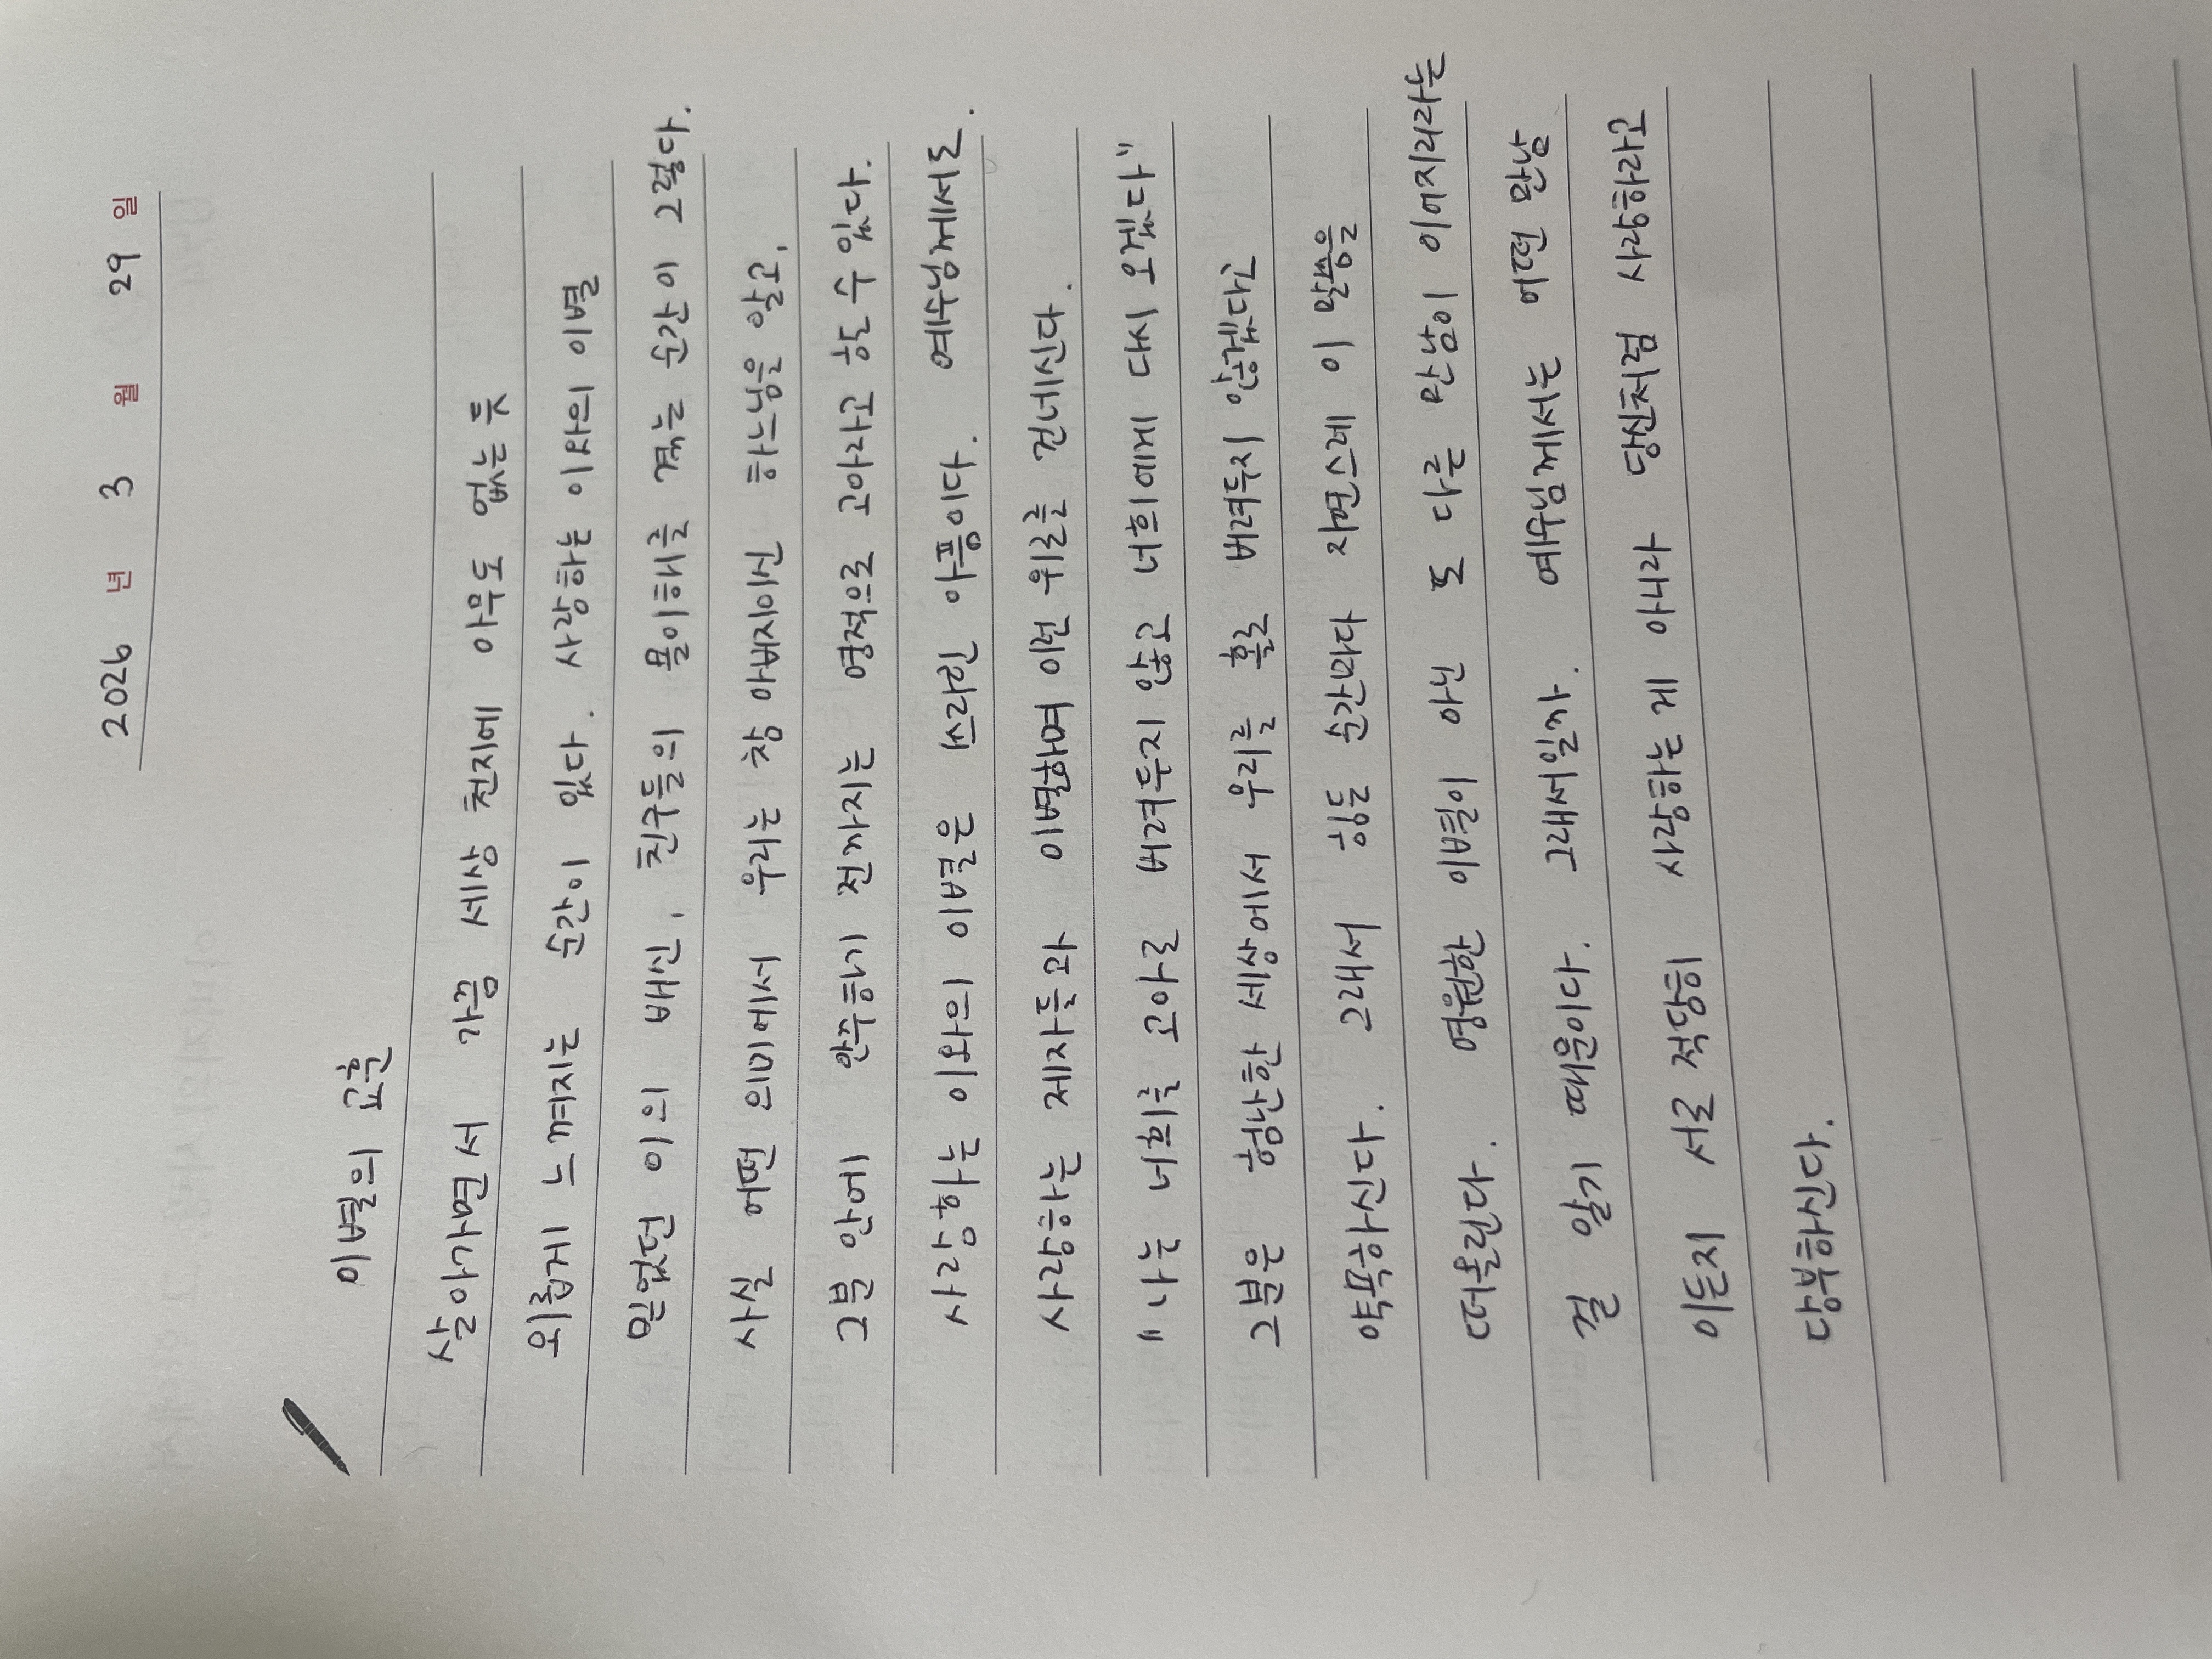 2026 년 3 월 29 일
이별의 교훈
살아가면서 가끔 세상 천지에 아무도 없는 듯
외롭게 느껴지는 순간이 있다. 사랑하는 이와의 이별
믿었던 이의 배신, 친구들의 몰이해를 겪는 순간이 그렇다.
사실 어떤 의미에서 우리는 참 아버지이신 하느님을 알고,
그분 안에 안주하기 전까지는 영적으로 고아라고 할 수 있다.
사랑하는 이와의 이별은 쓰라린 아픔이다. 예수님께서도.
사랑하는 제자들과 이별하며 이런 위로를 건네신다.
"나는 너희를 고아로 버려두지 않고 너희에게 다시 오겠다"
그분은 험난한 세상에서 우리를 홀로 버려두지 않겠다고
약속하신다. 그래서 힘든 순간마다 자연스레 이 말씀을
떠올린다. 영원한 이별이 아닌 또 다른 만남이 이어지리라는
걸 알기 때문이다. 그래서일까. 예수님께서는 어떤 만남
이든지 서로 적당히 사랑하는 게 아니라 당신처럼 사랑하라고
당부하신다.